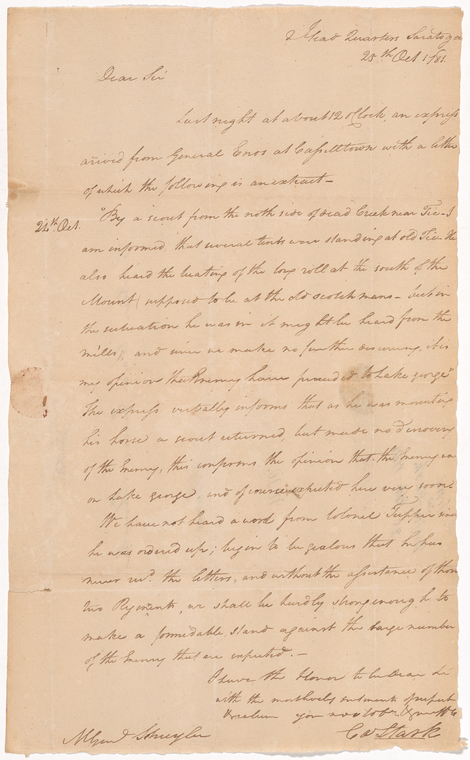 Head Quarters Saratoga
25th Oct 1781.
Dear Sir
Last night at about 12 oClock, an express
arived from General Enos at Castelltown with a letter
of which the following is an extract—
24th Oct.
"By a scout from the noth side of dead Creek near Tie—I
am informed, that several tents were standing at old Tie. He
also heard the beating of the long roll at the south of the
Mount (supposed to be at the old scotchmans— but in
the situation he was in it might be heard from the
mills) and since we make no further discovery, it is
my opinion the Enemy have proceeded to Lake george"
The express verbally informs that as he was mounting
his horse a scout returned, but made no discovery
of the Enemy, this confirms the opinion that the Enemy are
on Lake george, and of course expected here very soon
We have not heard a word from Colonel Tupper since
he was ordered up; begin to be jealous that he has
never recd. the letters, and without the assistance of those
two Regiments, we shall be hardly strong enough to
make a formidable stand against the large number
of the Enemy that are expected.—
I have the Honor to be Dear Sir
with the most lively sentiments of respect
& esteem your most Obt.
Stark
Schuyler